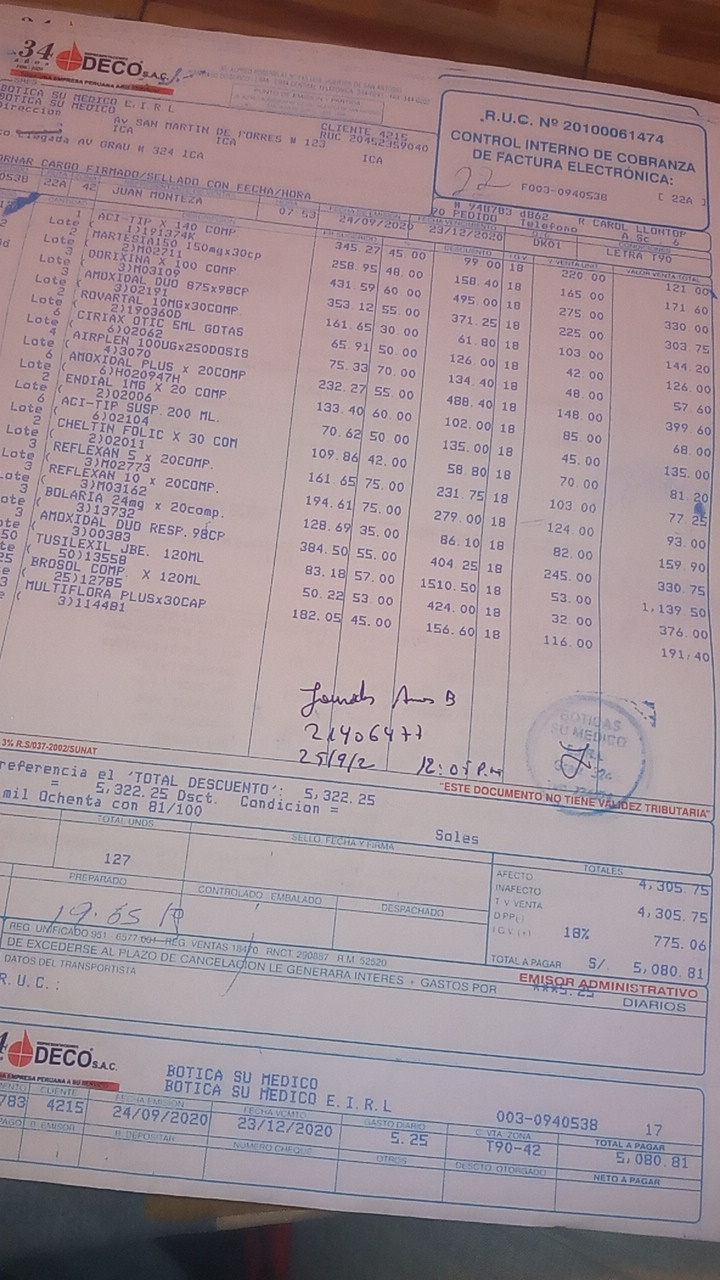 34
DECO S.A.C.
BOTICA SU MEDICO E.I.R L
BOTICA SU MEDICO E.I.R L
Direccion
Av SAN MARTIN DE PORRES # 123
CLIENTE 4215
RUC 20452359040
ICA
ICA
ICA
AV GRAU # 324 ICA
R.U.C. Nº 20100061474
CONTROL INTERNO DE COBRANZA
DE FACTURA ELECTRÓNICA:
22
F003-0940538 [ 22A ]
ORNAR CARGO FIRMADO/SELLADO CON FECHA/HORA
0538 22A 42 JUAN MONTEZA 07 53
24/09/2020 23/12/2020
# 948783 d862
R CAROL LLONTOP
PEDIDO Telefono A Sc 6
DK01 LETRA T90
ACI-TIP X 140 COMP 345.27 45 00 99 00 18 220 00 121 00
Lote ( 1)191374K
MARTESIA150 150mgx30cp 258.95 48.00 158.40 18 165 00 171 60
Lote ( 2)M02711
DORIXINA X 100 COMP 431.59 60.00 495 00 18 275 00 330 00
Lote ( 3)M03109
AMOXIDAL DUO 875x98CP 353 12 55.00 371.25 18 225 00 303 75
Lote ( 3)02191
ROVARTAL 10MGx30COMP. 161.65 30.00 61.80 18 103.00 144.20
Lote ( 2)190360D
CIRIAX OTIC 5ML GOTAS 65.91 50.00 126 00 18 42.00 126 00
Lote ( 6)02062
AIRPLEN 100UGx250DOSIS 75.33 70.00 134.40 18 48.00 57 60
Lote ( 4)3070
AMOXIDAL PLUS x 20COMP 232.27 55.00 488.40 18 148.00 399 60
Lote ( 6)H020947H
ENDIAL 1MG X 20 COMP. 133.40 60.00 102.00 18 85.00 68.00
Lote ( 2)02006
ACI-TIP SUSP 200 ML. 70.62 50 00 135.00 18 45.00 135.00
Lote ( 6)02104
CHELTIN FOLIC X 30 COM 109.86 42.00 58 80 18 70 00 81 20
Lote ( 2)02011
REFLEXAN 5 x 20COMP. 161.65 75.00 231.75 18 103.00 77 25
Lote ( 3)M02773
REFLEXAN 10 x 20COMP. 194.61 75.00 279 00 18 124.00 93 00
Lote ( 3)M03162
BOLARIA 24mg x 20comp. 128.69 35.00 86.10 18 82 00 159 90
( 3)13732
AMOXIDAL DUO RESP. 98CP 384.50 55.00 404 25 18 245 00 330 75
( 3)00383
TUSILEXIL JBE. 120ML 83.18 57.00 1510.50 18 53.00 1,139 50
( 50)13558
BROSOL COMP. X 120ML 50.22 53.00 424.00 18 32.00 376.00
( 25)12785
MULTIFLORA PLUSx30CAP 182.05 45.00 156.60 18 116.00 191.40
( 3)114481
21406477
25/9/2 12:05 P.m
BOTICAS
SU MEDICO
3% R.S/037-2002/SUNAT
"ESTE DOCUMENTO NO TIENE VALIDEZ TRIBUTARIA"
referencia el 'TOTAL DESCUENTO': 5,322.25
= 5,322.25 Dsct. Condicion =
mil Ochenta con 81/100 Soles
TOTAL UNDS
SELLO, FECHA Y FIRMA
TOTALES
127
AFECTO 4,305.75
INAFECTO
T.V VENTA 4,305.75
D.PP(-)
I.G.V (+) 18% 775.06
TOTAL A PAGAR S/. 5,080.81
PREPARADO
CONTROLADO EMBALADO
DESPACHADO
REG UNIFICADO 951 6577 091 REG VENTAS 18470 RNCT 290887 R.M 52520
DE EXCEDERSE AL PLAZO DE CANCELACION LE GENERARA INTERES + GASTOS POR ***5.25 DIARIOS
EMISOR ADMINISTRATIVO
DATOS DEL TRANSPORTISTA
R.U.C.:
DECO S.A.C.
BOTICA SU MEDICO
BOTICA SU MEDICO E.I.R.L
003-0940538 17
CLIENTE
FECHA EMISION
FECHA VCMTO
GASTO DIARIO
C. VTA. ZONA
TOTAL A PAGAR
783 4215 24/09/2020 23/12/2020 5.25 T90-42 5,080.81
R. EMISOR
R. DEPOSITAR
NUMERO CHEQUE
OTROS
DESCTO OTORGADO
NETO A PAGAR